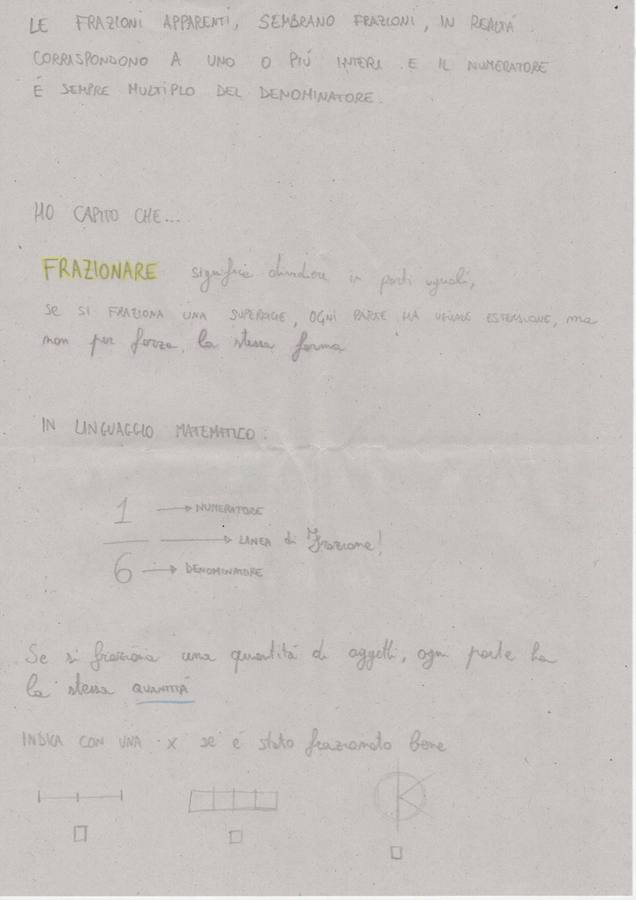 LE FRAZIONI APPARENTI, SEMBRANO FRAZIONI, IN REALTÁ
CORRISPONDONO A UNO O PIÚ INTERI E IL NUMERATORE
É SEMPRE MULTIPLO DEL DENOMINATORE.
HO CAPITO CHE...
FRAZIONARE significa dividere in parti uguali,
SE SI FRAZIONA UNA SUPERFICIE, OGNI PARTE HA UGUALE ESTENSIONE, ma
non per forza la stessa forma
IN LINGUAGGIO MATEMATICO:
1 → NUMERATORE
→ LINEA di Frazione!
6 → DENOMINATORE
Se si fraziona una quantitá di oggetti, ogni parte ha
la stessa QUANTITÁ
INDICA CON UNA X se é stato frazionato bene